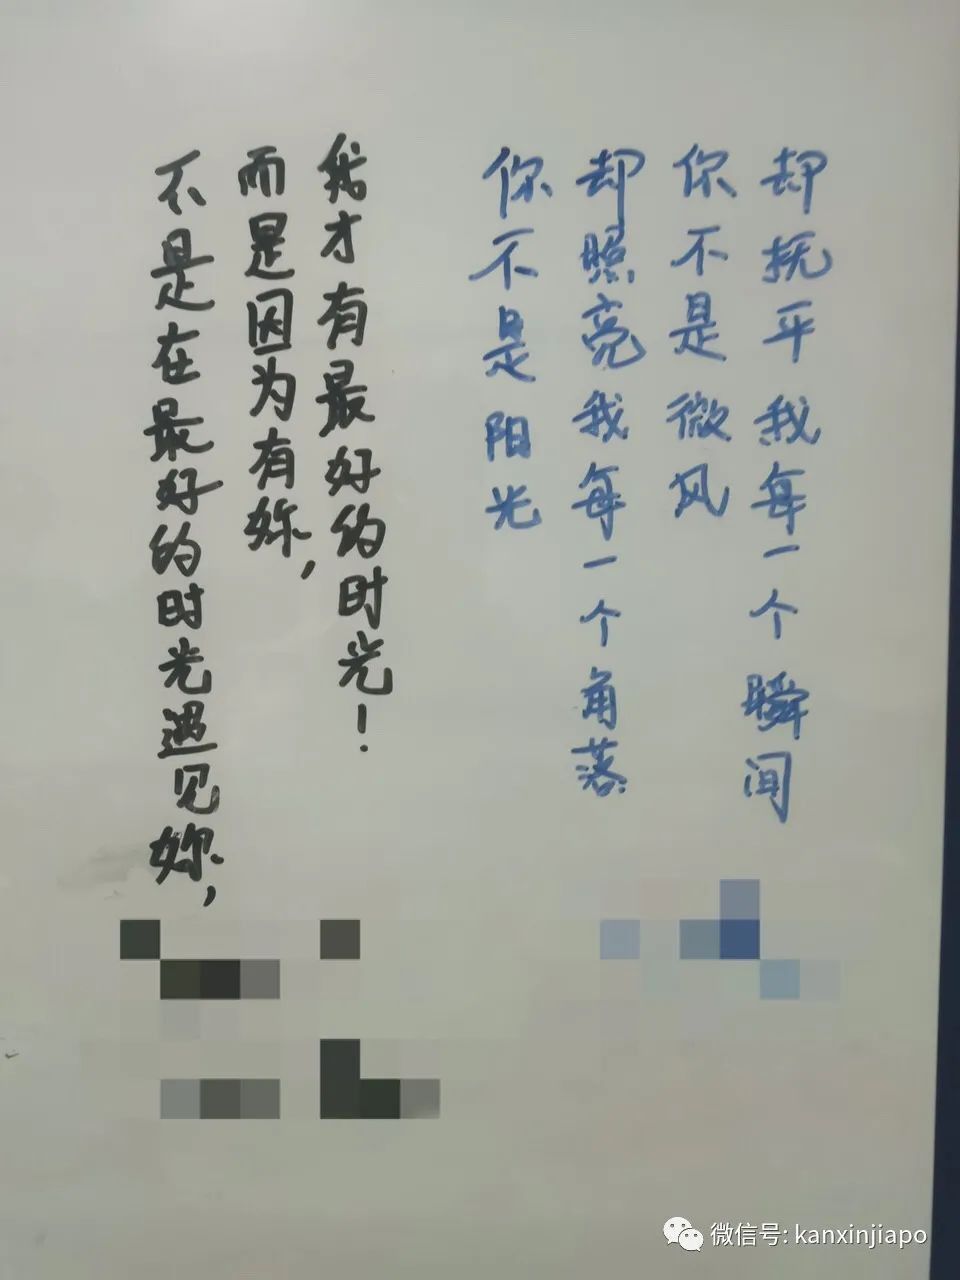 不是在最好的时光遇见妳,
而是因为有妳,
我才有最好的时光!
你不是阳光
却照亮我每一个角落
你不是微风
却抚平我每一个瞬间
微信号: kanxinjiapo